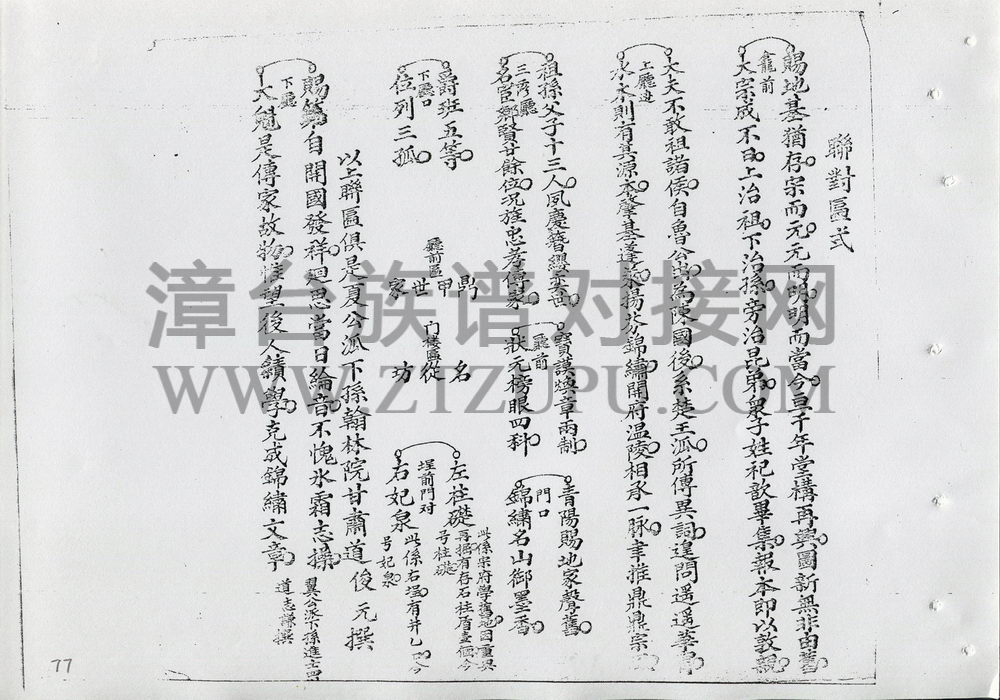 聯對匾式
賜地基猶存宗而元元而明明而當今亘千年堂構再興圖新無非由舊
龕前
大宗成不日上治祖下治孫旁治昆弟衆子姓祀歆畢集報本即以敦親
大夫不敢祖諸侯自魯公出為陳國後系楚王派所傳異詞遑問遥遥華胄
上廳進
水木則有真源本肇基蓬萊揚芬錦繡開府温陵相承一脉聿推鼎鼎宗
祖孫父子十三人夙慶簪纓奕世
三湾廳
名宦鄉賢廿餘位況旌忠孝傳家
寶謨奬章兩制
廳前
狀元榜眼四科
青陽賜地家聲舊
門口
錦繡名山御墨香
爵班五等
下廳口
位列三孤
廳前匾
鼎甲世家
门楼匾
名從坊
左柱礎
此係宗府學舊地因重興再掘有存石柱盾壹個今号柱礎
埕前門对
右妃泉
此係右边有井乙口今号妃泉
以上聯匾俱是夏公派下孫翰林院甘肅道俊元撰
賜第自開國發祥迴思當日綸音不愧氷霜志操
下廳
大魁是傳家故物惟望後人績學克成錦繡文章
翼公派下孫進士四
道志謙撰
漳台族谱对接网
WWW.ZTZUPU.COM
77